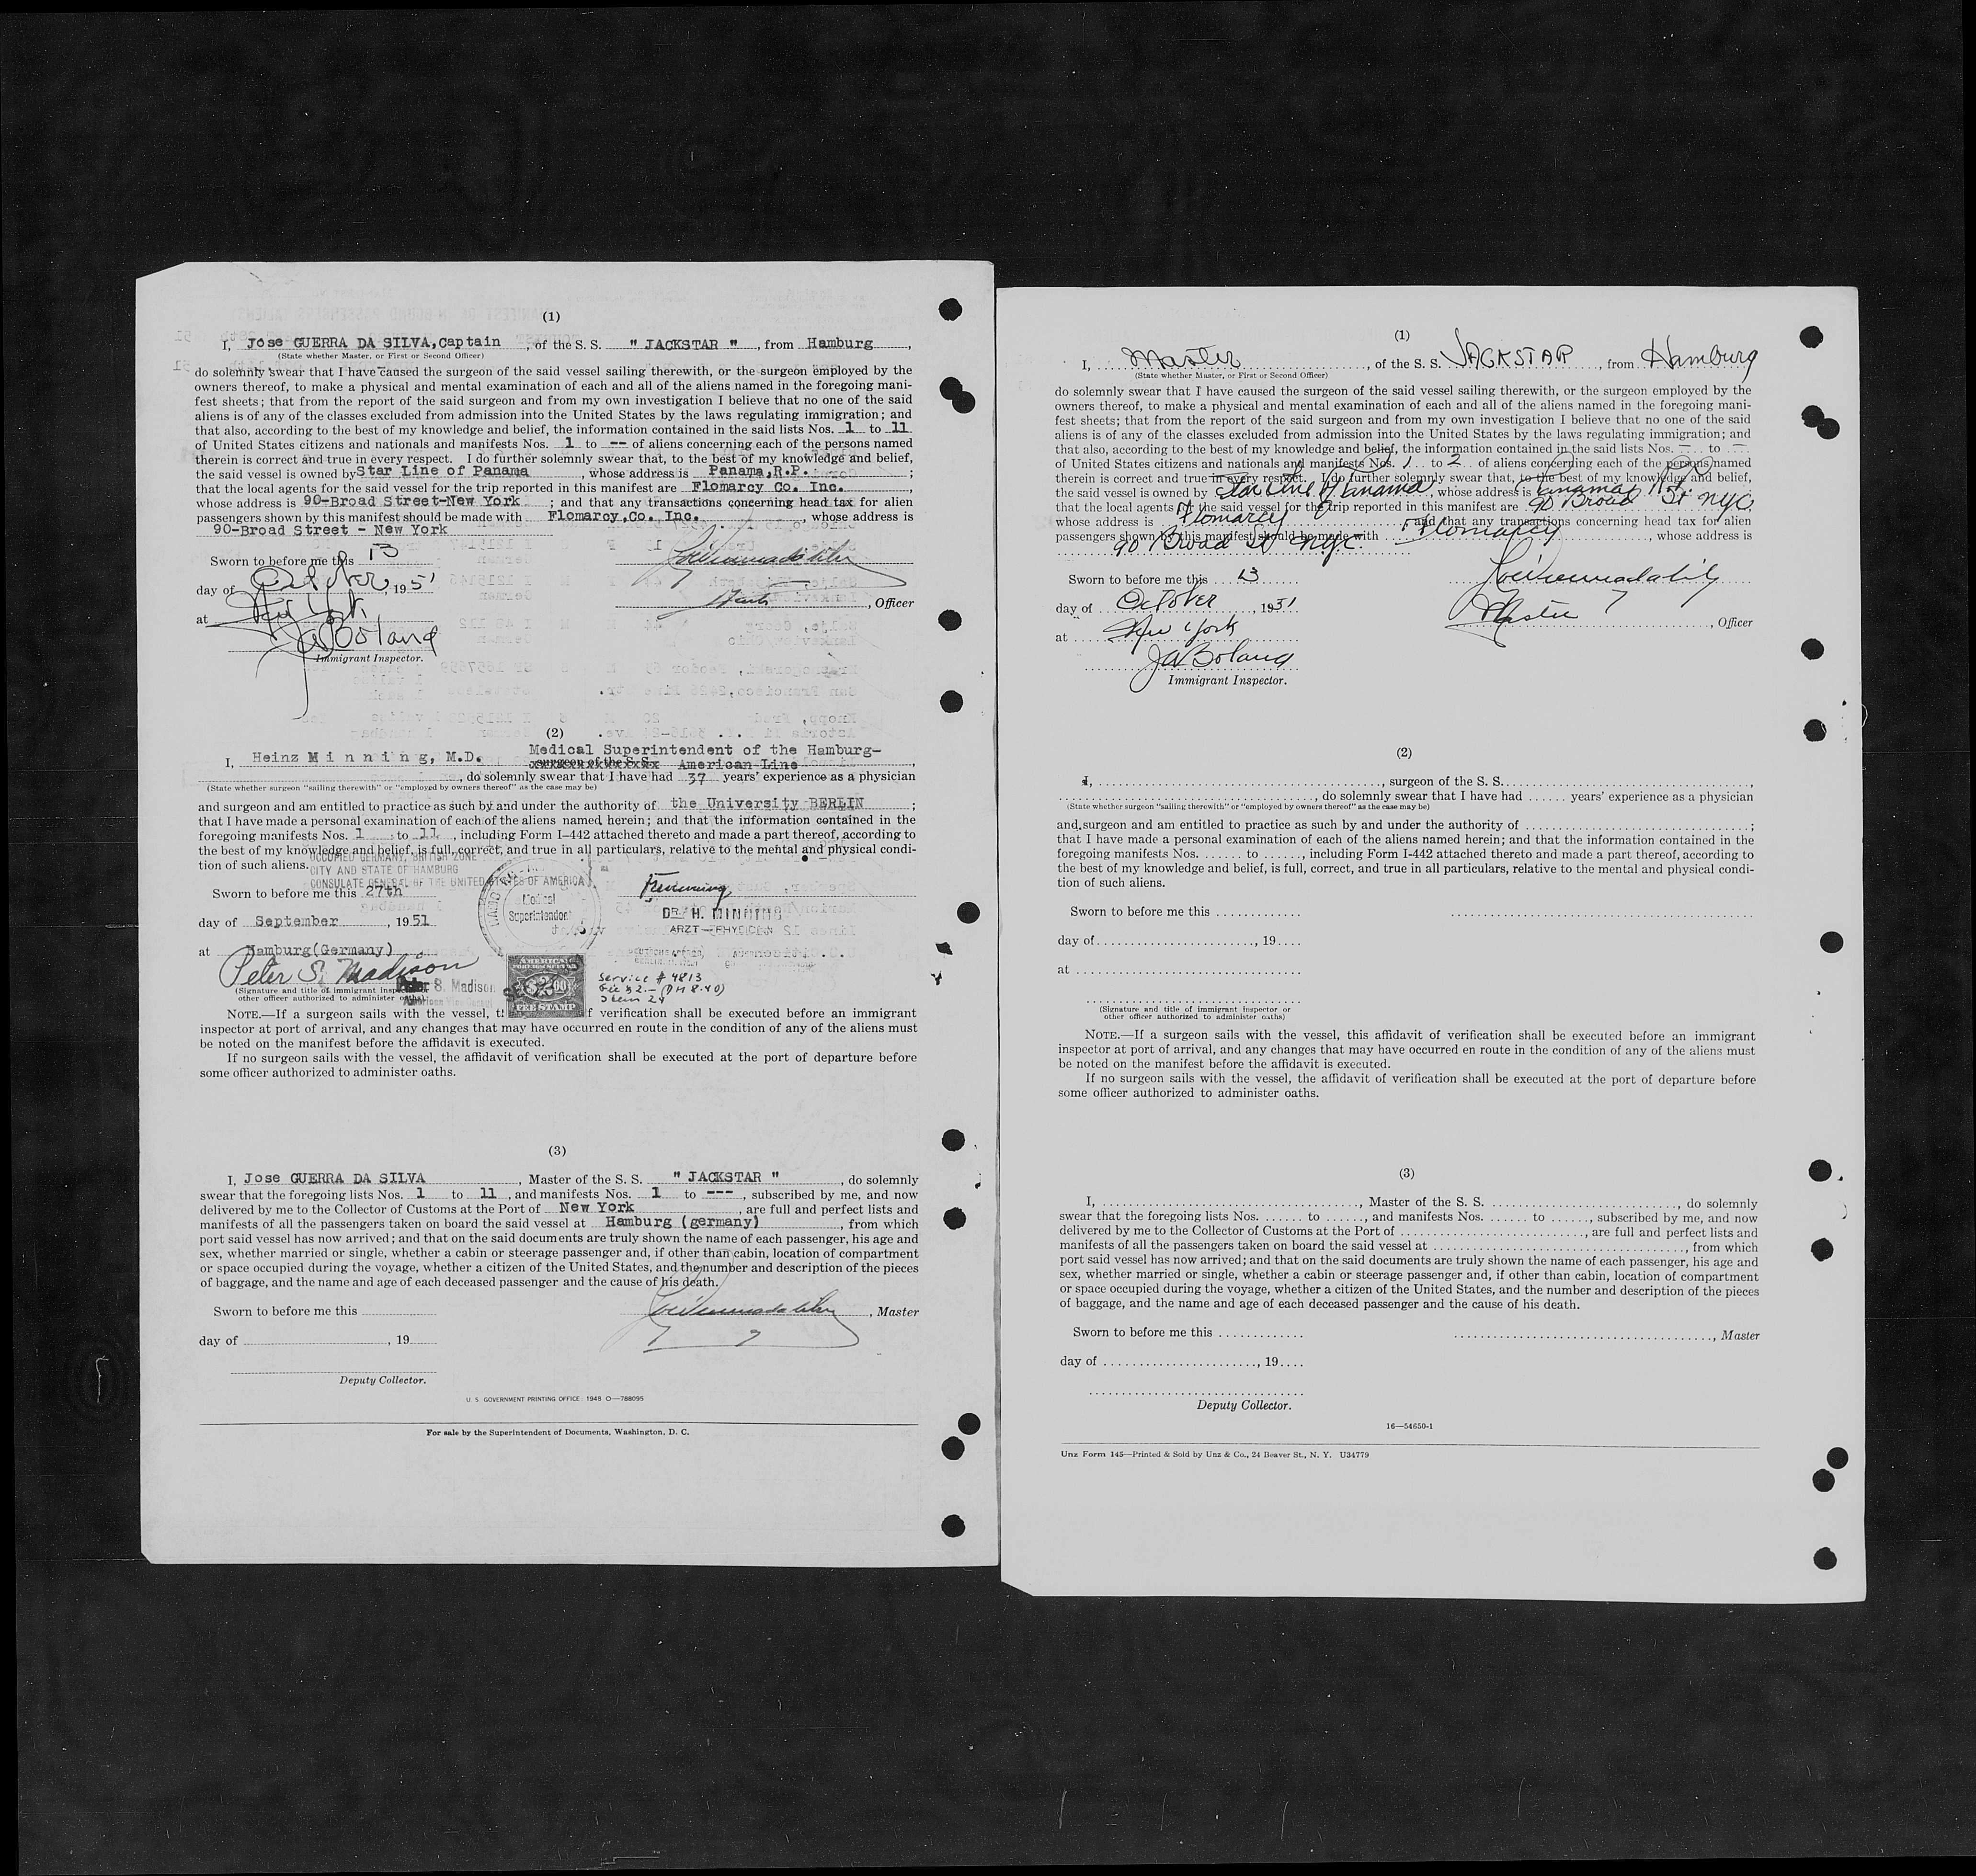 (1)
I, Jose GUERRA DA SILVA, Captain, of the S. S. " JACKSTAR ", from Hamburg,
(State whether Master, or First or Second Officer)
do solemnly swear that I have caused the surgeon of the said vessel sailing therewith, or the surgeon employed by the
owners thereof, to make a physical and mental examination of each and all of the aliens named in the foregoing mani-
fest sheets; that from the report of the said surgeon and from my own investigation I believe that no one of the said
aliens is of any of the classes excluded from admission into the United States by the laws regulating immigration; and
that also, according to the best of my knowledge and belief, the information contained in the said lists Nos. 1 to 11
of United States citizens and nationals and manifests Nos. 1 to -- of aliens concerning each of the persons named
therein is correct and true in every respect. I do further solemnly swear that, to the best of my knowledge and belief,
the said vessel is owned by Star Line of Panama, whose address is Panama, R.P. ;
that the local agents for the said vessel for the trip reported in this manifest are Flomarcy Co. Inc.,
whose address is 90-Broad Street-New York ; and that any transactions concerning head tax for alien
passengers shown by this manifest should be made with Flomarcy, Co. Inc., whose address is
90-Broad Street - New York
Sworn to before me this 13
day of October, 1951
, Officer
at New York
JW Boland
Immigrant Inspector.
(2)
I, Heinz M i n n i n g, M.D. Medical Superintendent of the Hamburg-
surgeon of the S. S. American-Line,
, do solemnly swear that I have had 37 years' experience as a physician
(State whether surgeon "sailing therewith" or "employed by owners thereof" as the case may be)
and surgeon and am entitled to practice as such by and under the authority of the University BERLIN ;
that I have made a personal examination of each of the aliens named herein; and that the information contained in the
foregoing manifests Nos. 1 to 11, including Form I-442 attached thereto and made a part thereof, according to
the best of my knowledge and belief, is full, correct, and true in all particulars, relative to the mental and physical condi-
tion of such aliens.
OCCUPIED GERMANY, BRITISH ZONE
CITY AND STATE OF HAMBURG
CONSULATE GENERAL OF THE UNITED STATES OF AMERICA
Sworn to before me this 27th
Medical
Superintendent
DR. H. MINNING
ARZT - PHYSICIAN
day of September, 1951
at Hamburg (Germany)
Peter S. Madison
Peter S. Madison
American Vice Consul
(Signature and title of immigrant inspector or
other officer authorized to administer oaths)
AMERICAN
FOREIGN SERVICE
$2.00
FEE STAMP
Service # 4813
Fee $2.- (DM 8.40)
Item 24
NOTE.—If a surgeon sails with the vessel, t f verification shall be executed before an immigrant
inspector at port of arrival, and any changes that may have occurred en route in the condition of any of the aliens must
be noted on the manifest before the affidavit is executed.
If no surgeon sails with the vessel, the affidavit of verification shall be executed at the port of departure before
some officer authorized to administer oaths.
(3)
I, Jose GUERRA DA SILVA, Master of the S. S. " JACKSTAR ", do solemnly
swear that the foregoing lists Nos. 1 to 11, and manifests Nos. 1 to ---, subscribed by me, and now
delivered by me to the Collector of Customs at the Port of New York, are full and perfect lists and
manifests of all the passengers taken on board the said vessel at Hamburg (germany), from which
port said vessel has now arrived; and that on the said documents are truly shown the name of each passenger, his age and
sex, whether married or single, whether a cabin or steerage passenger and, if other than cabin, location of compartment
or space occupied during the voyage, whether a citizen of the United States, and the number and description of the pieces
of baggage, and the name and age of each deceased passenger and the cause of his death.
Sworn to before me this
, Master
day of , 19
Deputy Collector.
U. S. GOVERNMENT PRINTING OFFICE: 1948 O—788095
For sale by the Superintendent of Documents, Washington, D. C.
(1)
I, Master, of the S. S. JACKSTAR, from Hamburg
(State whether Master, or First or Second Officer)
do solemnly swear that I have caused the surgeon of the said vessel sailing therewith, or the surgeon employed by the
owners thereof, to make a physical and mental examination of each and all of the aliens named in the foregoing mani-
fest sheets; that from the report of the said surgeon and from my own investigation I believe that no one of the said
aliens is of any of the classes excluded from admission into the United States by the laws regulating immigration; and
that also, according to the best of my knowledge and belief, the information contained in the said lists Nos. — to —
of United States citizens and nationals and manifests Nos. 1 to 2 of aliens concerning each of the persons named
therein is correct and true in every respect. I do further solemnly swear that, to the best of my knowledge and belief,
the said vessel is owned by Star Line of Panama, whose address is Panama R.P.
that the local agents of the said vessel for the trip reported in this manifest are 90 Broad St NYC
whose address is Flomarcy ; and that any transactions concerning head tax for alien
passengers shown by this manifest should be made with Flomarcy, whose address is
90 Broad St NYC.
Sworn to before me this 13
day of October, 1951
Master, Officer
at New York
JW Boland
Immigrant Inspector.
(2)
I, , surgeon of the S. S. ,
, do solemnly swear that I have had ...... years' experience as a physician
(State whether surgeon "sailing therewith" or "employed by owners thereof" as the case may be)
and surgeon and am entitled to practice as such by and under the authority of ;
that I have made a personal examination of each of the aliens named herein; and that the information contained in the
foregoing manifests Nos. ...... to ......, including Form I-442 attached thereto and made a part thereof, according to
the best of my knowledge and belief, is full, correct, and true in all particulars, relative to the mental and physical condi-
tion of such aliens.
Sworn to before me this
day of , 19....
at
(Signature and title of immigrant inspector or
other officer authorized to administer oaths)
NOTE.—If a surgeon sails with the vessel, this affidavit of verification shall be executed before an immigrant
inspector at port of arrival, and any changes that may have occurred en route in the condition of any of the aliens must
be noted on the manifest before the affidavit is executed.
If no surgeon sails with the vessel, the affidavit of verification shall be executed at the port of departure before
some officer authorized to administer oaths.
(3)
I, , Master of the S. S. , do solemnly
swear that the foregoing lists Nos. ...... to ......, and manifests Nos. ...... to ......, subscribed by me, and now
delivered by me to the Collector of Customs at the Port of , are full and perfect lists and
manifests of all the passengers taken on board the said vessel at , from which
port said vessel has now arrived; and that on the said documents are truly shown the name of each passenger, his age and
sex, whether married or single, whether a cabin or steerage passenger and, if other than cabin, location of compartment
or space occupied during the voyage, whether a citizen of the United States, and the number and description of the pieces
of baggage, and the name and age of each deceased passenger and the cause of his death.
Sworn to before me this
, Master
day of , 19....
Deputy Collector.
16—54650-1
Unz Form 145—Printed & Sold by Unz & Co., 24 Beaver St., N. Y. U34779